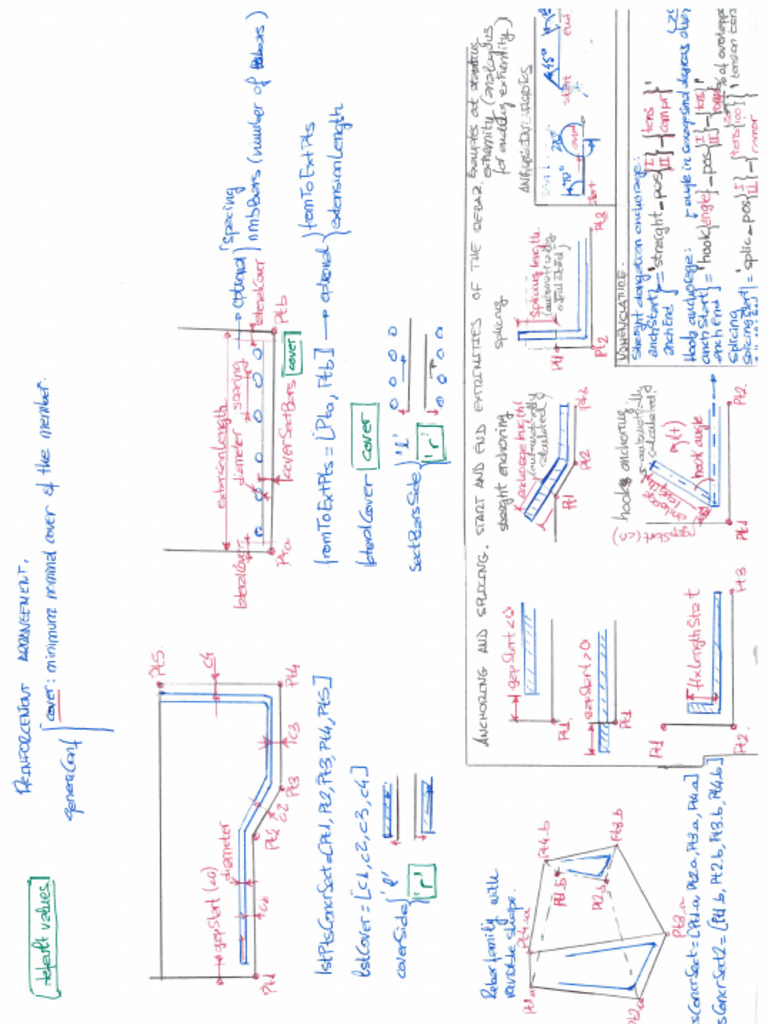 REINFORCEMENT ARRANGEMENT.
default values
generalConf { cover: minimum nominal cover of the member.
gapStart (<0)
diameter
c1
c2
c3
c4
Pt1
Pt2
Pt3
Pt4
Pt5
lstPtsConcrSect=[Pt1, Pt2, Pt3, Pt4, Pt5]
lstCover=[c1, c2, c3, c4]
coverSide { 'l'
'r'
extensionLength
diameter, spacing
lateralCover
lateralCover
coverSectBars
cover
Pta
Ptb
optional { spacing
nmbBars (number of rebars)
fromToExtPts = [Pta, Ptb] → optional { fromToExtPts
extensionLength
lateralCover cover
sectBarsSide { 'l'
'r'
Rebar family with
variable shape.
Pt1.a
Pt2.a
Pt3.a
Pt4.a
Pt1.b
Pt2.b
Pt3.b
Pt4.b
sConcrSect=[Pt1.a, Pt2.a, Pt3.a, Pt4.a]
sConcrSect2=[Pt1.b, Pt2.b, Pt3.b, Pt4.b]
ANCHORING AND SPLICING. START AND END EXTREMITIES OF THE REBAR
Examples at starting
extremity (analogous
for ending extremity)
gapStart <0
Pt1
gapStart >0
Pt1
fixLengthStart
Pt1
Pt2
Pt3
straight anchoring
anchorage length
(automatically
calculated)
Pt1
Pt2
Pt3
hook anchoring
automatically
calculated
hook angle
Pt1
Pt2
splicing
Splicing length
(automatically
calculated)
Pt1
Pt2
Pt3
90°
start
end
45°
start
end
NOMENCLATURE.
Straight elongation anchorage:
anchStart
anchEnd } = 'straight-pos{I II}-{tens compr}'
Hook anchorage:
angle in sexagesimal degrees
anchStart
anchEnd } = 'hook{angle}-pos{I II}-{tens compr}'
splicing